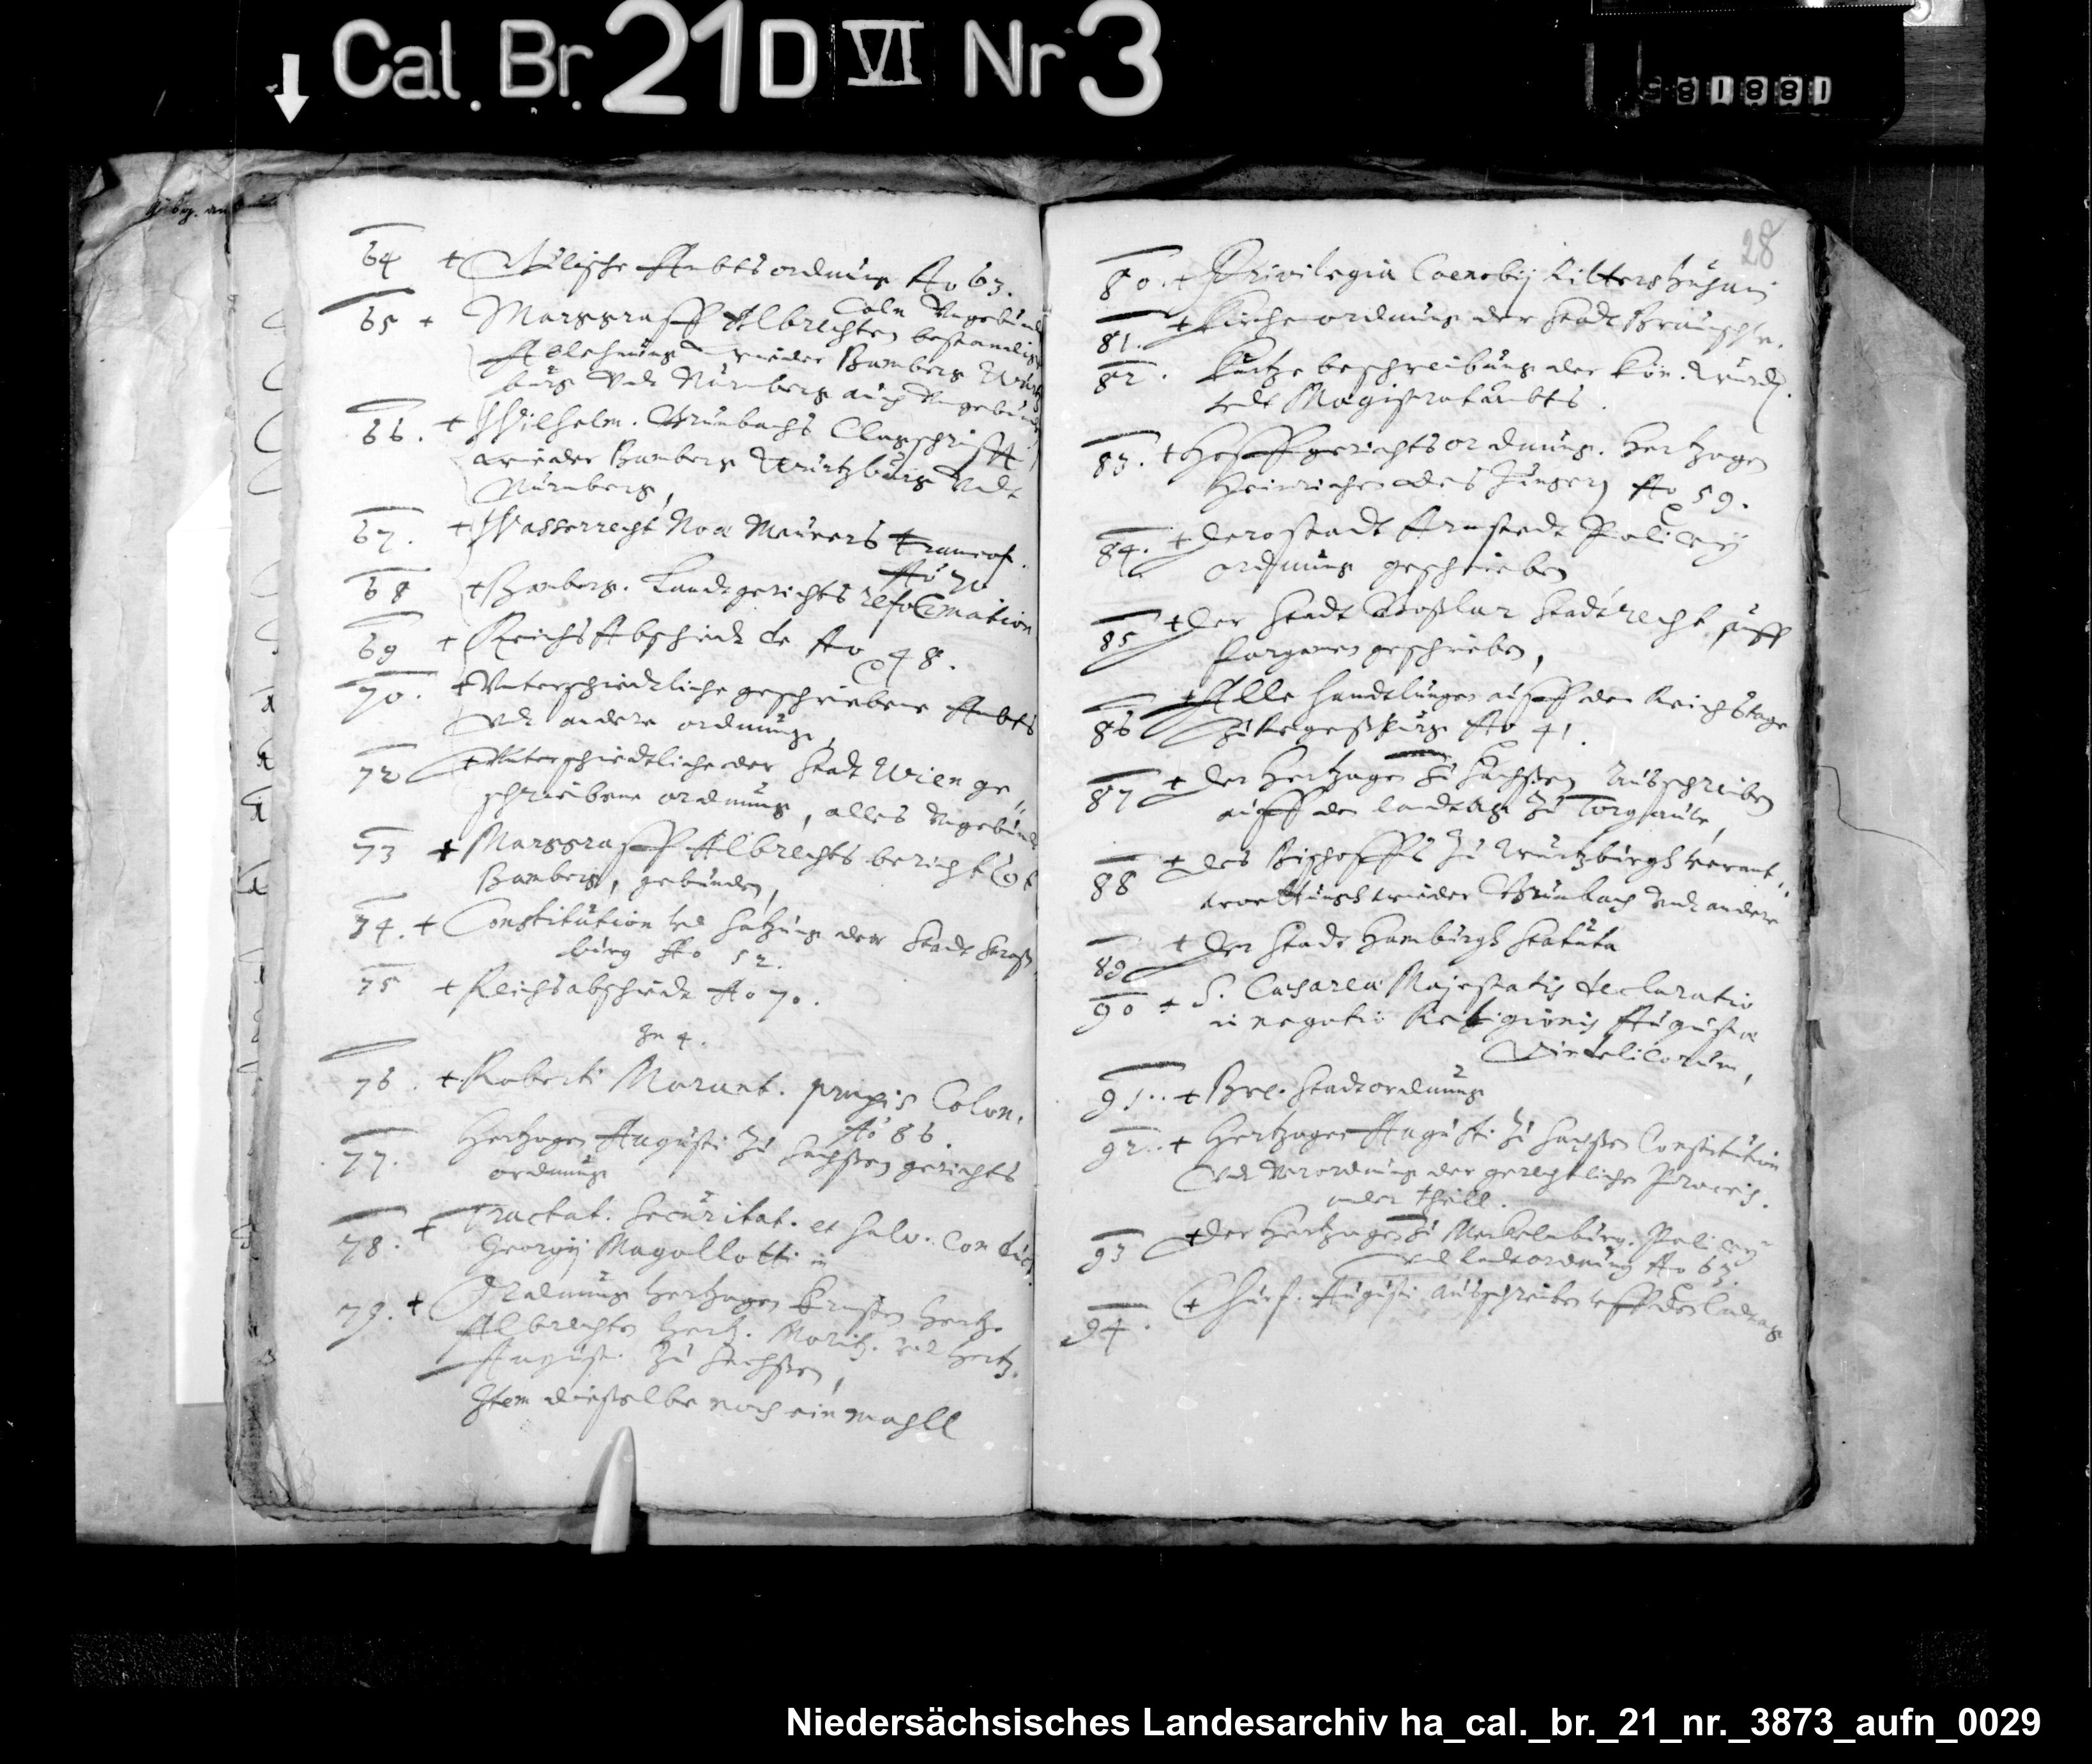 Cal. Br. 21 D VI Nr 3
581881
28
64 + Gülische Ambtsordnung Ao 63.
Coln Ungebund
65 + Marggraff Albrechten bestendige
Ablehnung wieder Bamberg Würtz
burg Vndt Nürnberg auch Vngebund
66. + Wilhelm. Grumbachs Clagschrifft
wieder Bamberg Würtzburg Vndt
Nürnberg,
67. + Wasserrecht Noa Meurers Francof.
Ao 70
68 + Bamberg. Landtgerichts reformation
69 + Reichs Abschiedt de Ao 48.
70. + Vnterschiedtliche geschriebene Ambts
Vndt andere ordnunge,
72 + Vnterschiedtliche der Stadt Wien ge
schriebene ordnung, alles Vngebund
73 + Marggraff Albrechts bericht
Bamberg, gebunden,
74. + Constitution vnd Satzung der Stadt Straß
burg Ao 52.
75 + Reichsabschiede Ao 70.
In 4.
76. + Roberti Marant. praxis Colon.
Ao 86.
77. Hertzogen Augusti zu Sachßen gerichts
ordnung
78. + Tractat. Securitat. et salv. conduct
Georgij Magallotti
79. + Ordnung Hertzogen Ernsten Hertz.
Albrechten Hertz. Moritz. vnd Hertz.
August. zu Sachßen,
Item dieselbe noch ein mahll
80. + Privilegia Coenobij Ritterßhusani
81. + Kirchenordnung der Stadt Braunschw.
82. Kurtze beschreibung der Kön. würd.
vndt Magistratambts.
83. + Hoffgerichtsordnung. Hertzogen
Heinrichen des Jüngern Ao 59.
84. + Der Stadt Arnstedt Policey
ordnung geschrieben
85 + Der Stadt Goßlar Stadtrecht auff
Pergamen geschrieben,
86 + Alle Handtlungen auff den Reichstage
zu Regenßpurg Ao 41.
87 + Der Hertzogen zu Sachßen Außschreiben
auff den landtag zu Torgaute,
88 + Des Bischoffs zu Würtzburgk verant
wortung wieder Grumbach Vndt andere
89 + Der Stadt Hamburgk Statuta
90 + S. Caesarea Majestatis declaratio
in negotio Religionis Augusta
Vindelicorum,
91. + Bre. Stadtordnung
92. + Hertzogen Augusti zu Sachßen Constitution
Vndt Verordnung der gerechtlichen Proceß.
ander theill.
93 + Der Hertzogen zu Meckelnburg. Policey
vnd Landtordnung Ao 62.
94. + Churf. Augusti Außschreiben vff den landtag
Niedersächsisches Landesarchiv ha_cal._br._21_nr._3873_aufn_0029